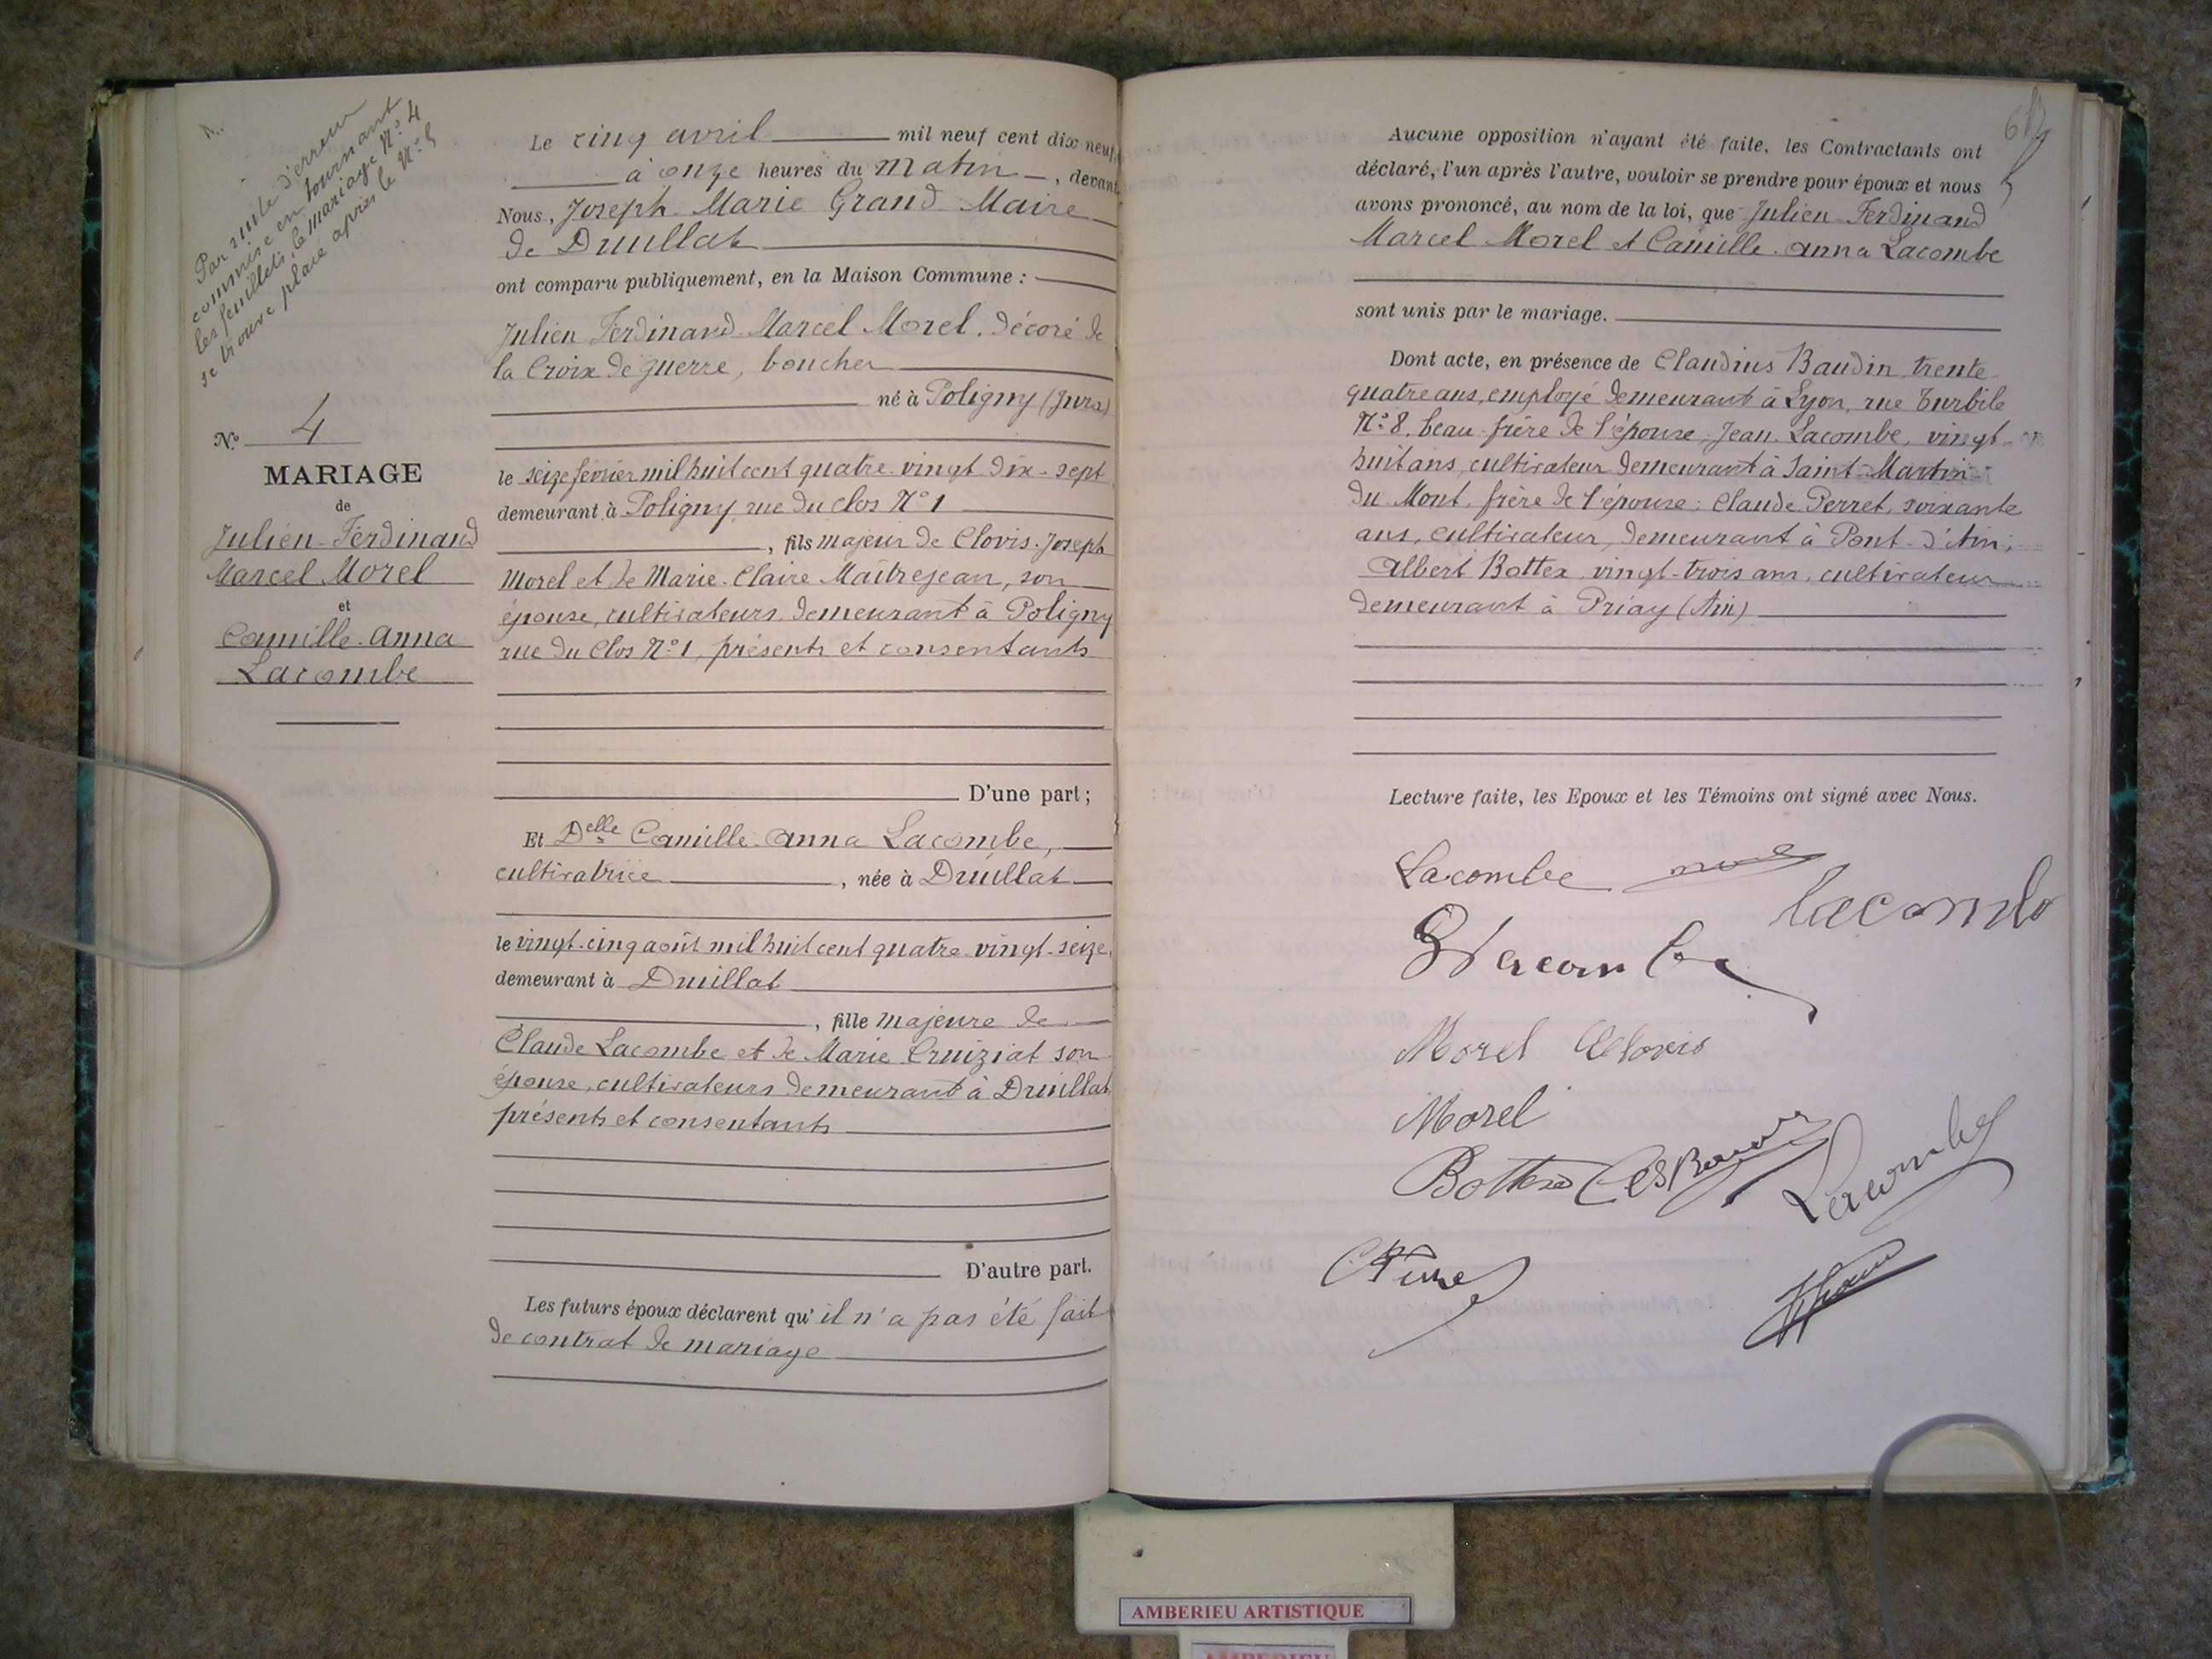 Par suite d'erreur
commise en tournant
les feuillets, le mariage N° 4
se trouve placé après le N° 5
N° 4
MARIAGE
de
Julien-Ferdinand
Marcel Morel
et
Camille-Anna
Lacombe
Le cinq avril mil neuf cent dix neuf,
à onze heures du matin, devant
Nous, Joseph-Marie Grand Maire
de Druillat
ont comparu publiquement, en la Maison Commune :
Julien Ferdinand-Marcel Morel, décoré de
la Croix de guerre, boucher
né à Poligny (Jura)
le seize février mil huit cent quatre-vingt dix-sept
demeurant à Poligny, rue du Clos N° 1
, fils majeur de Clovis-Joseph
Morel et de Marie-Claire Maîtrejean, son
épouse, cultivateurs demeurant à Poligny
rue du Clos N° 1, présents et consentants
D'une part ;
Et Delle Camille-Anna Lacombe,
cultivatrice, née à Druillat
le vingt-cinq août mil huit cent quatre-vingt-seize,
demeurant à Druillat
, fille majeure de
Claude Lacombe et de Marie Cruiziat son
épouse, cultivateurs demeurant à Druillat
présents et consentants
D'autre part.
Les futurs époux déclarent qu'il n'a pas été fait
de contrat de mariage
Aucune opposition n'ayant été faite, les Contractants ont
déclaré, l'un après l'autre, vouloir se prendre pour époux et nous
avons prononcé, au nom de la loi, que Julien Ferdinand
Marcel Morel et Camille-Anna Lacombe
sont unis par le mariage.
Dont acte, en présence de Claudius Baudin, trente-
quatre ans, employé demeurant à Lyon, rue Turbile
N° 8, beau-frère de l'épouse, Jean Lacombe, vingt-
huit ans, cultivateur demeurant à Saint-Martin-
du Mont, frère de l'épouse ; Claude Perret, soixante
ans, cultivateur, demeurant à Pont-d'Ain,
Albert Bottex, vingt-trois ans, cultivateur
demeurant à Priay (Ain)
Lecture faite, les Epoux et les Témoins ont signé avec Nous.
Lacombe
Lacombe
Lacombe
Morel Clovis
Morel
Bottex
Lacombe
AMBERIEU ARTISTIQUE
AMBERIEU